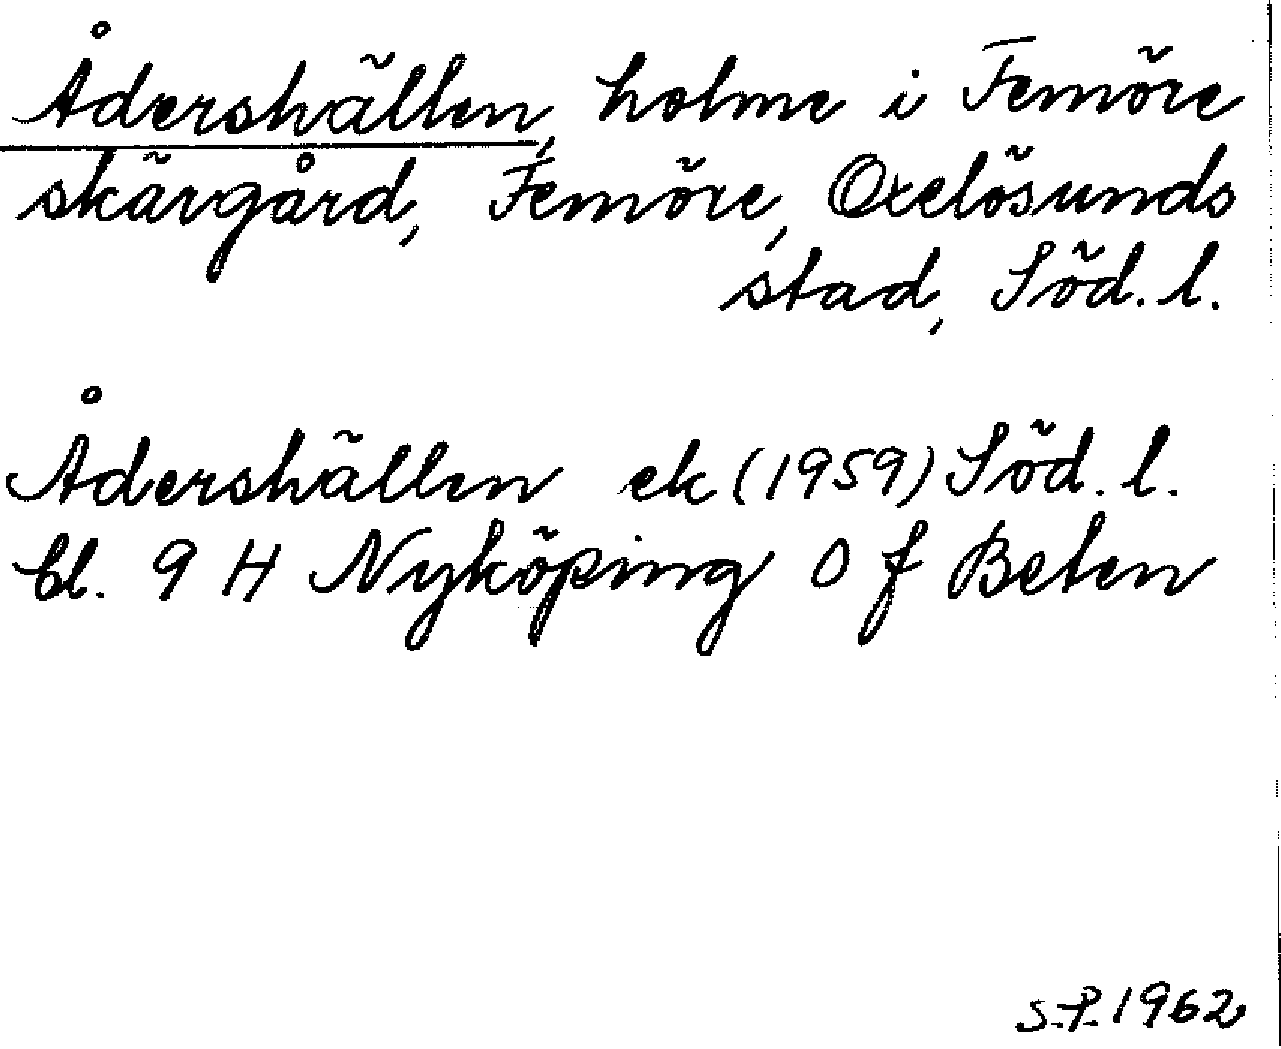 Ådershällen, holme i Femöre
skärgård, Femöre, Oxelösunds
stad, Söd. l.
Ådershällen ek (1959) Söd. l.
bl. 9 H Nyköping 0 f Beten
S.P. 1962